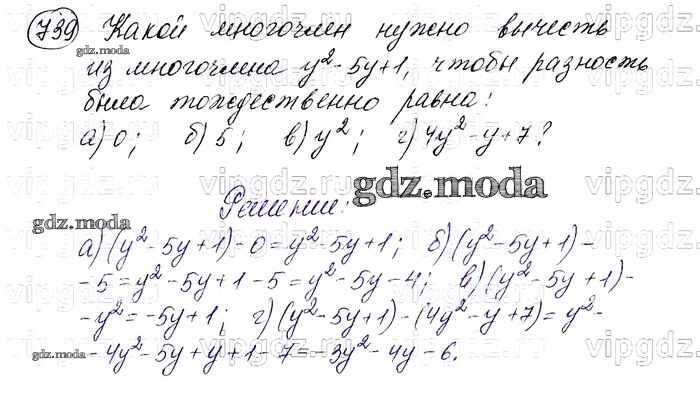 739 Какой многочлен нужно вычесть
из многочлена y²-5y+1, чтобы разность
была тождественно равна:
а) 0; б) 5; в) y²; г) 4y²-y+7?
gdz.moda
Решение:
а) (y²-5y+1)-0=y²-5y+1; б) (y²-5y+1)-
-5=y²-5y+1-5=y²-5y-4; в) (y²-5y+1)-
-y²=-5y+1; г) (y²-5y+1)-(4y²-y+7)=y²-
-4y²-5y+y+1-7=-3y²-4y-6.
gdz.moda
gdz.moda
gdz.moda
vipgdz.ru